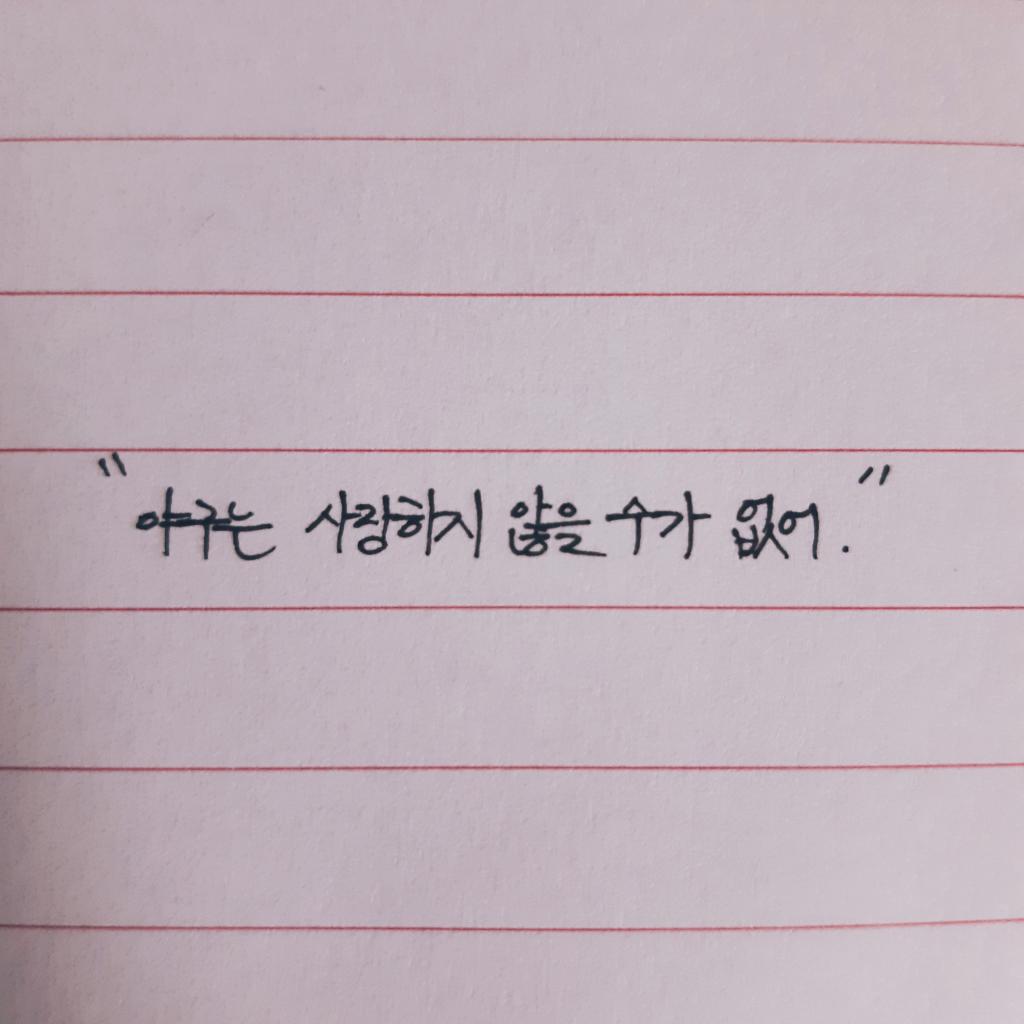 "야구는 사랑하지 않을 수가 없어."